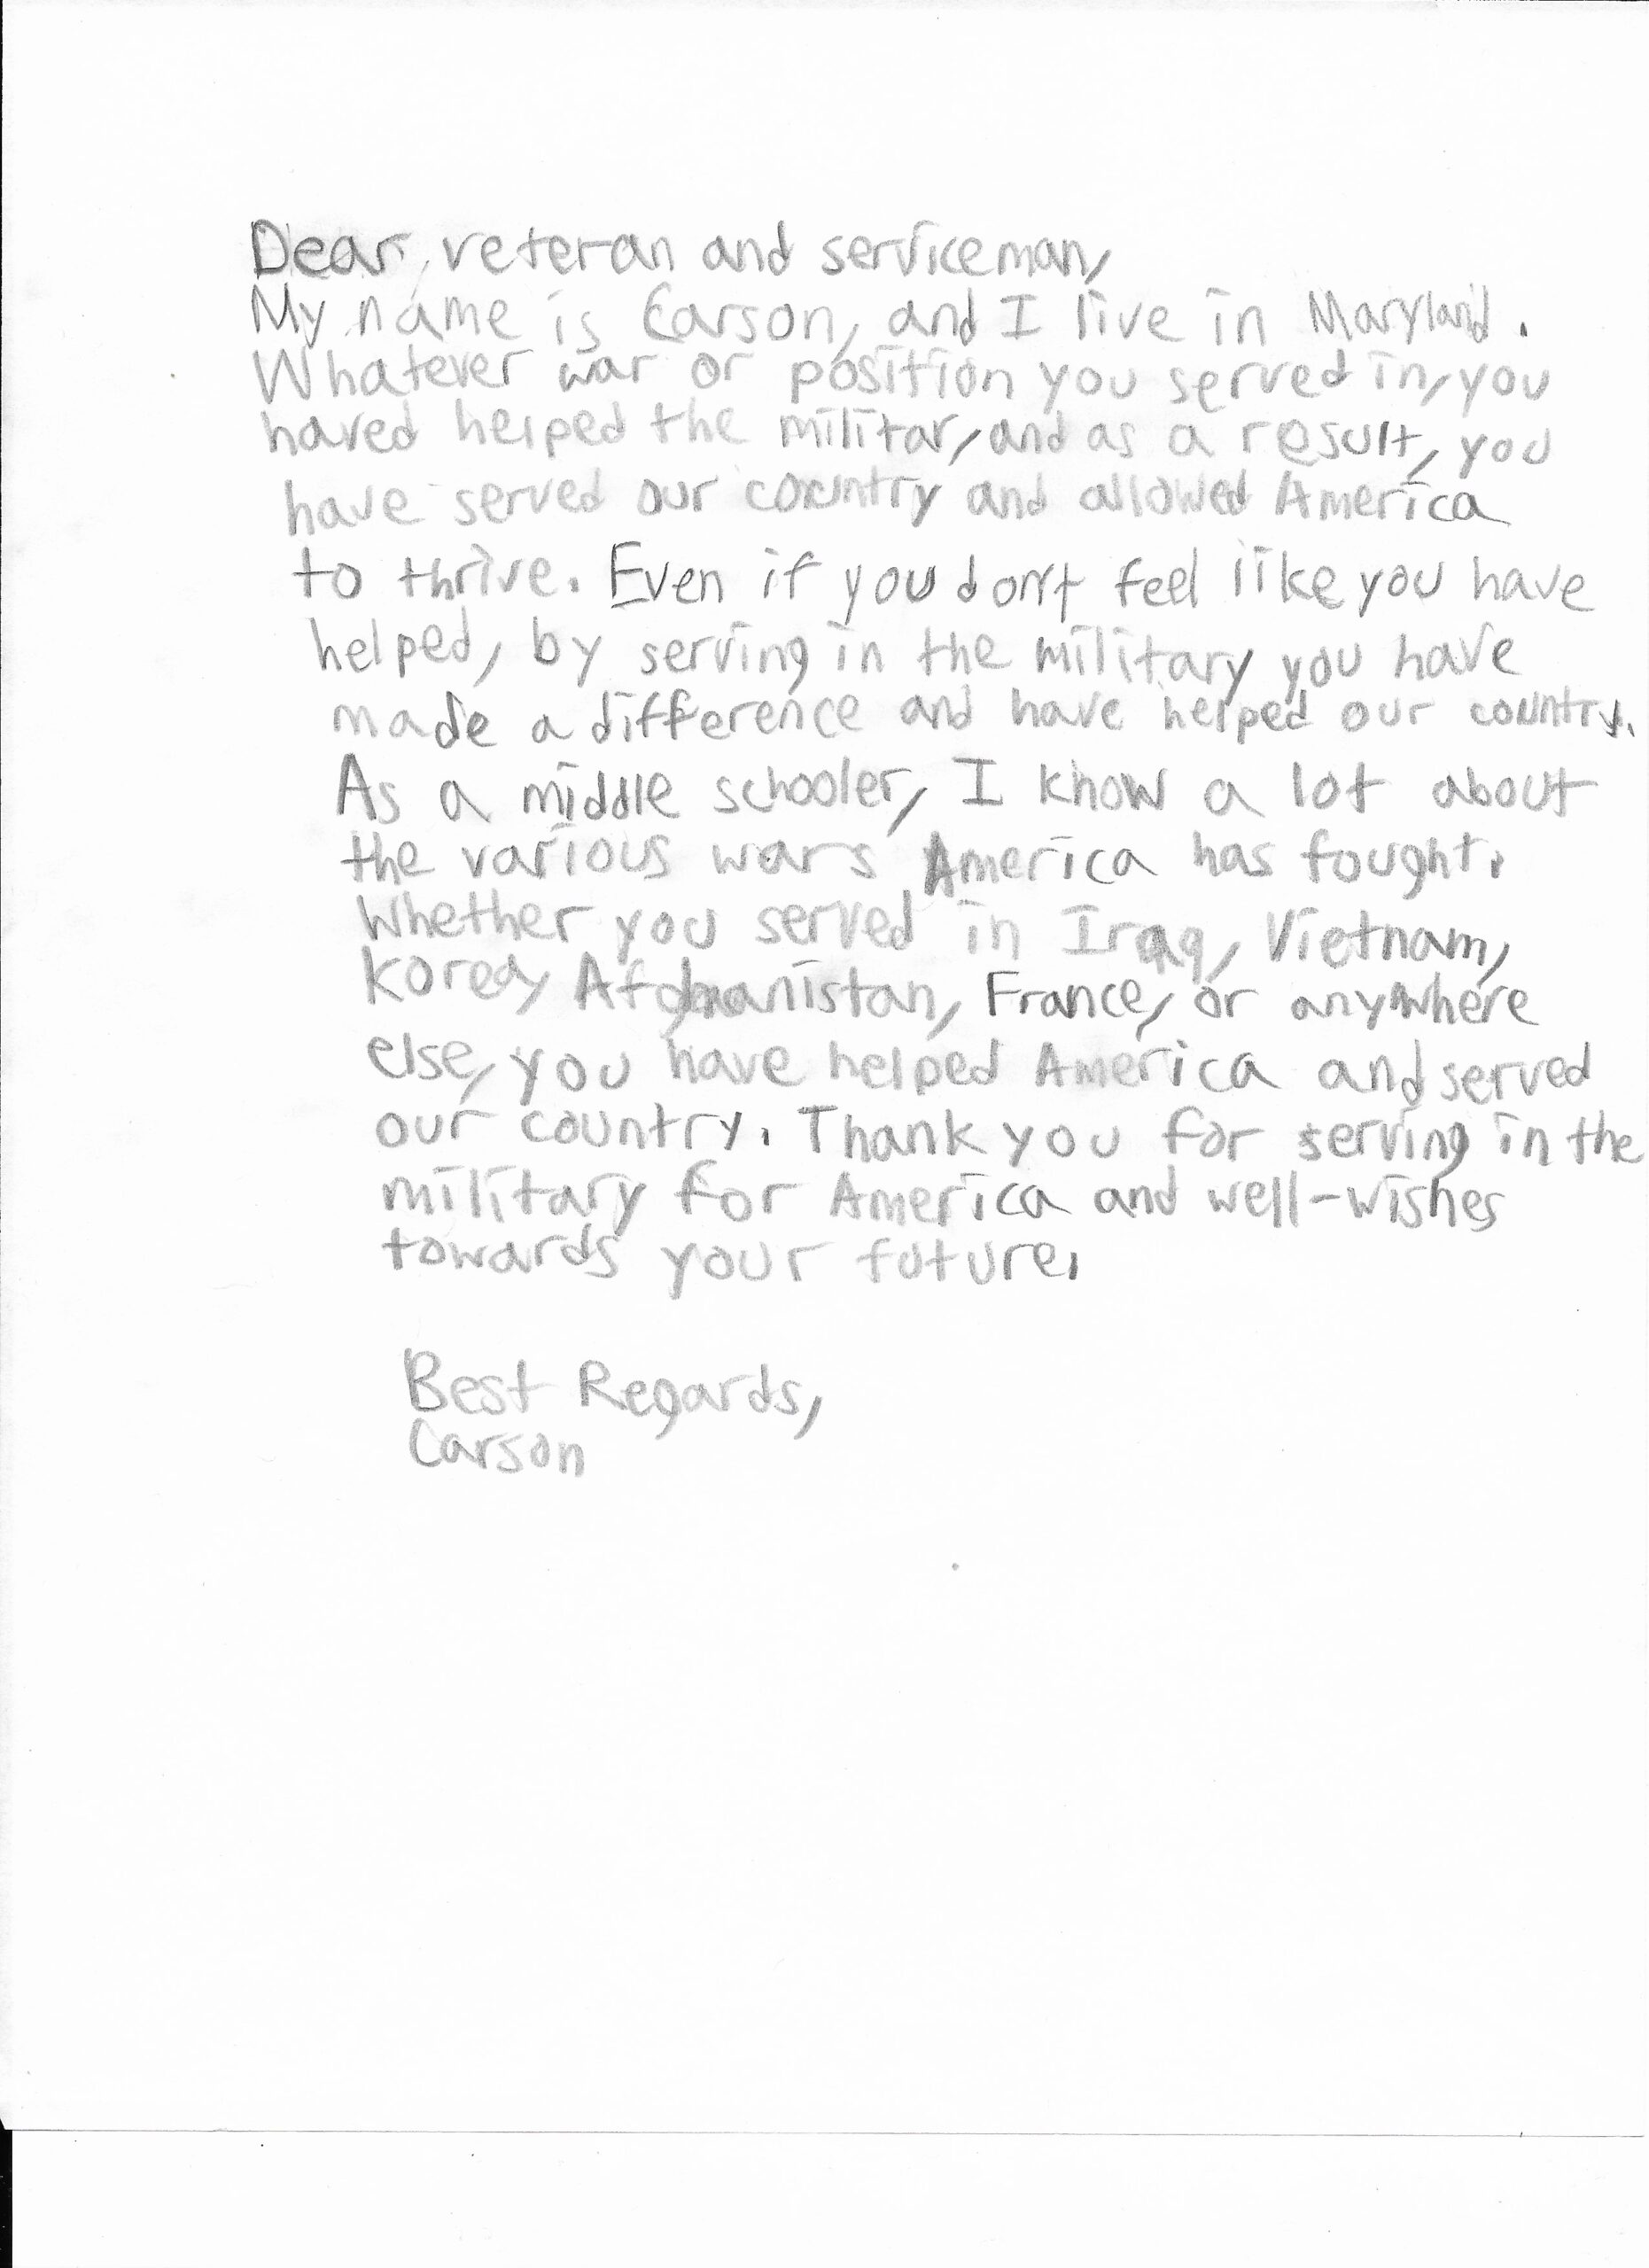 Dear, veteran and serviceman,
My name is Carson, and I live in Maryland.
Whatever war or position you served in, you
haved helped the militar, and as a result, you
have served our country and allowed America
to thrive. Even if you don't feel like you have
helped, by serving in the military you have
made a difference and have helped our country.
As a middle schooler, I know a lot about
the various wars America has fought.
Whether you served in Iraq, Vietnam,
Korea, Afghanistan, France, or anywhere
else, you have helped America and served
our country. Thank you for serving in the
military for America and well-wishes
towards your future.
Best Regards,
Carson